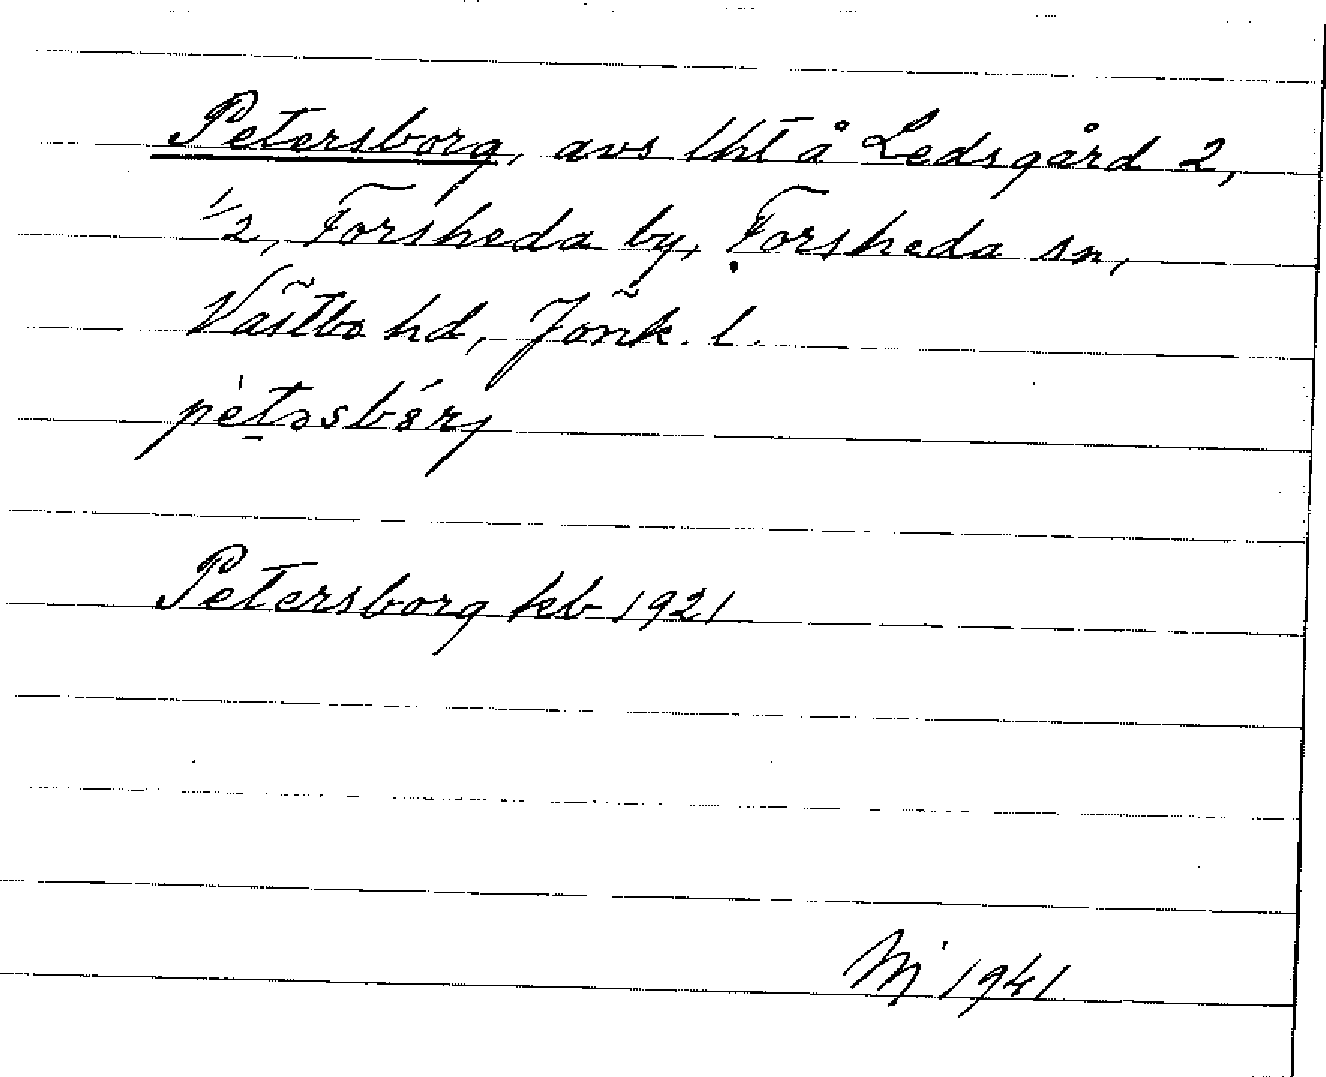 Petersborg, avs lht å Ledsgård 2,
1/2, Forsheda by, Forsheda sn,
Västbo hd, Jönk. l.
Petersborg kb 1921
1941